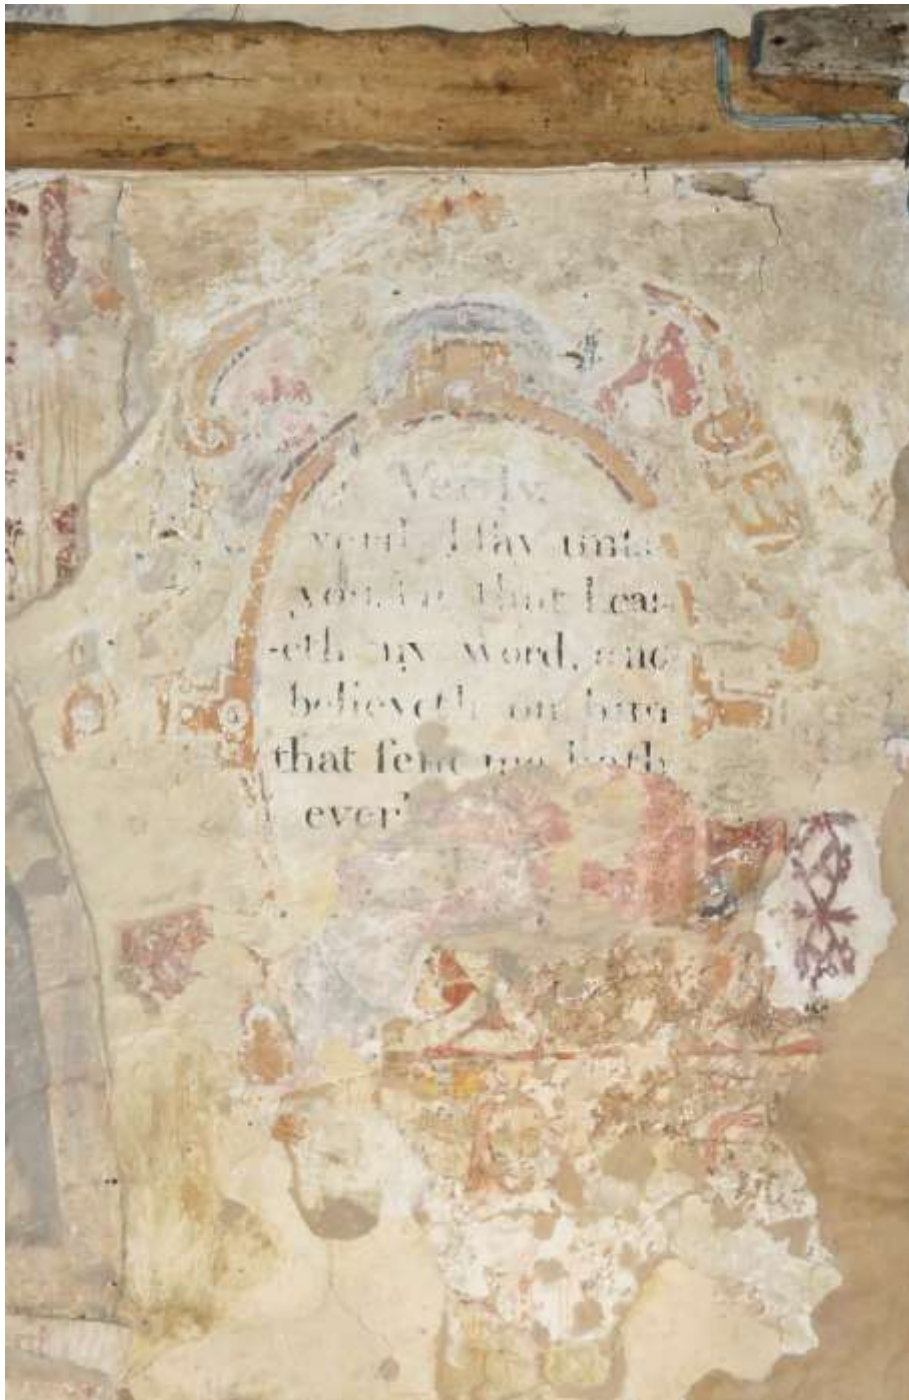 Verely
verely I ſay unto
you, he that hear-
-eth my word, and
believeth on him
that ſent me hath
everl